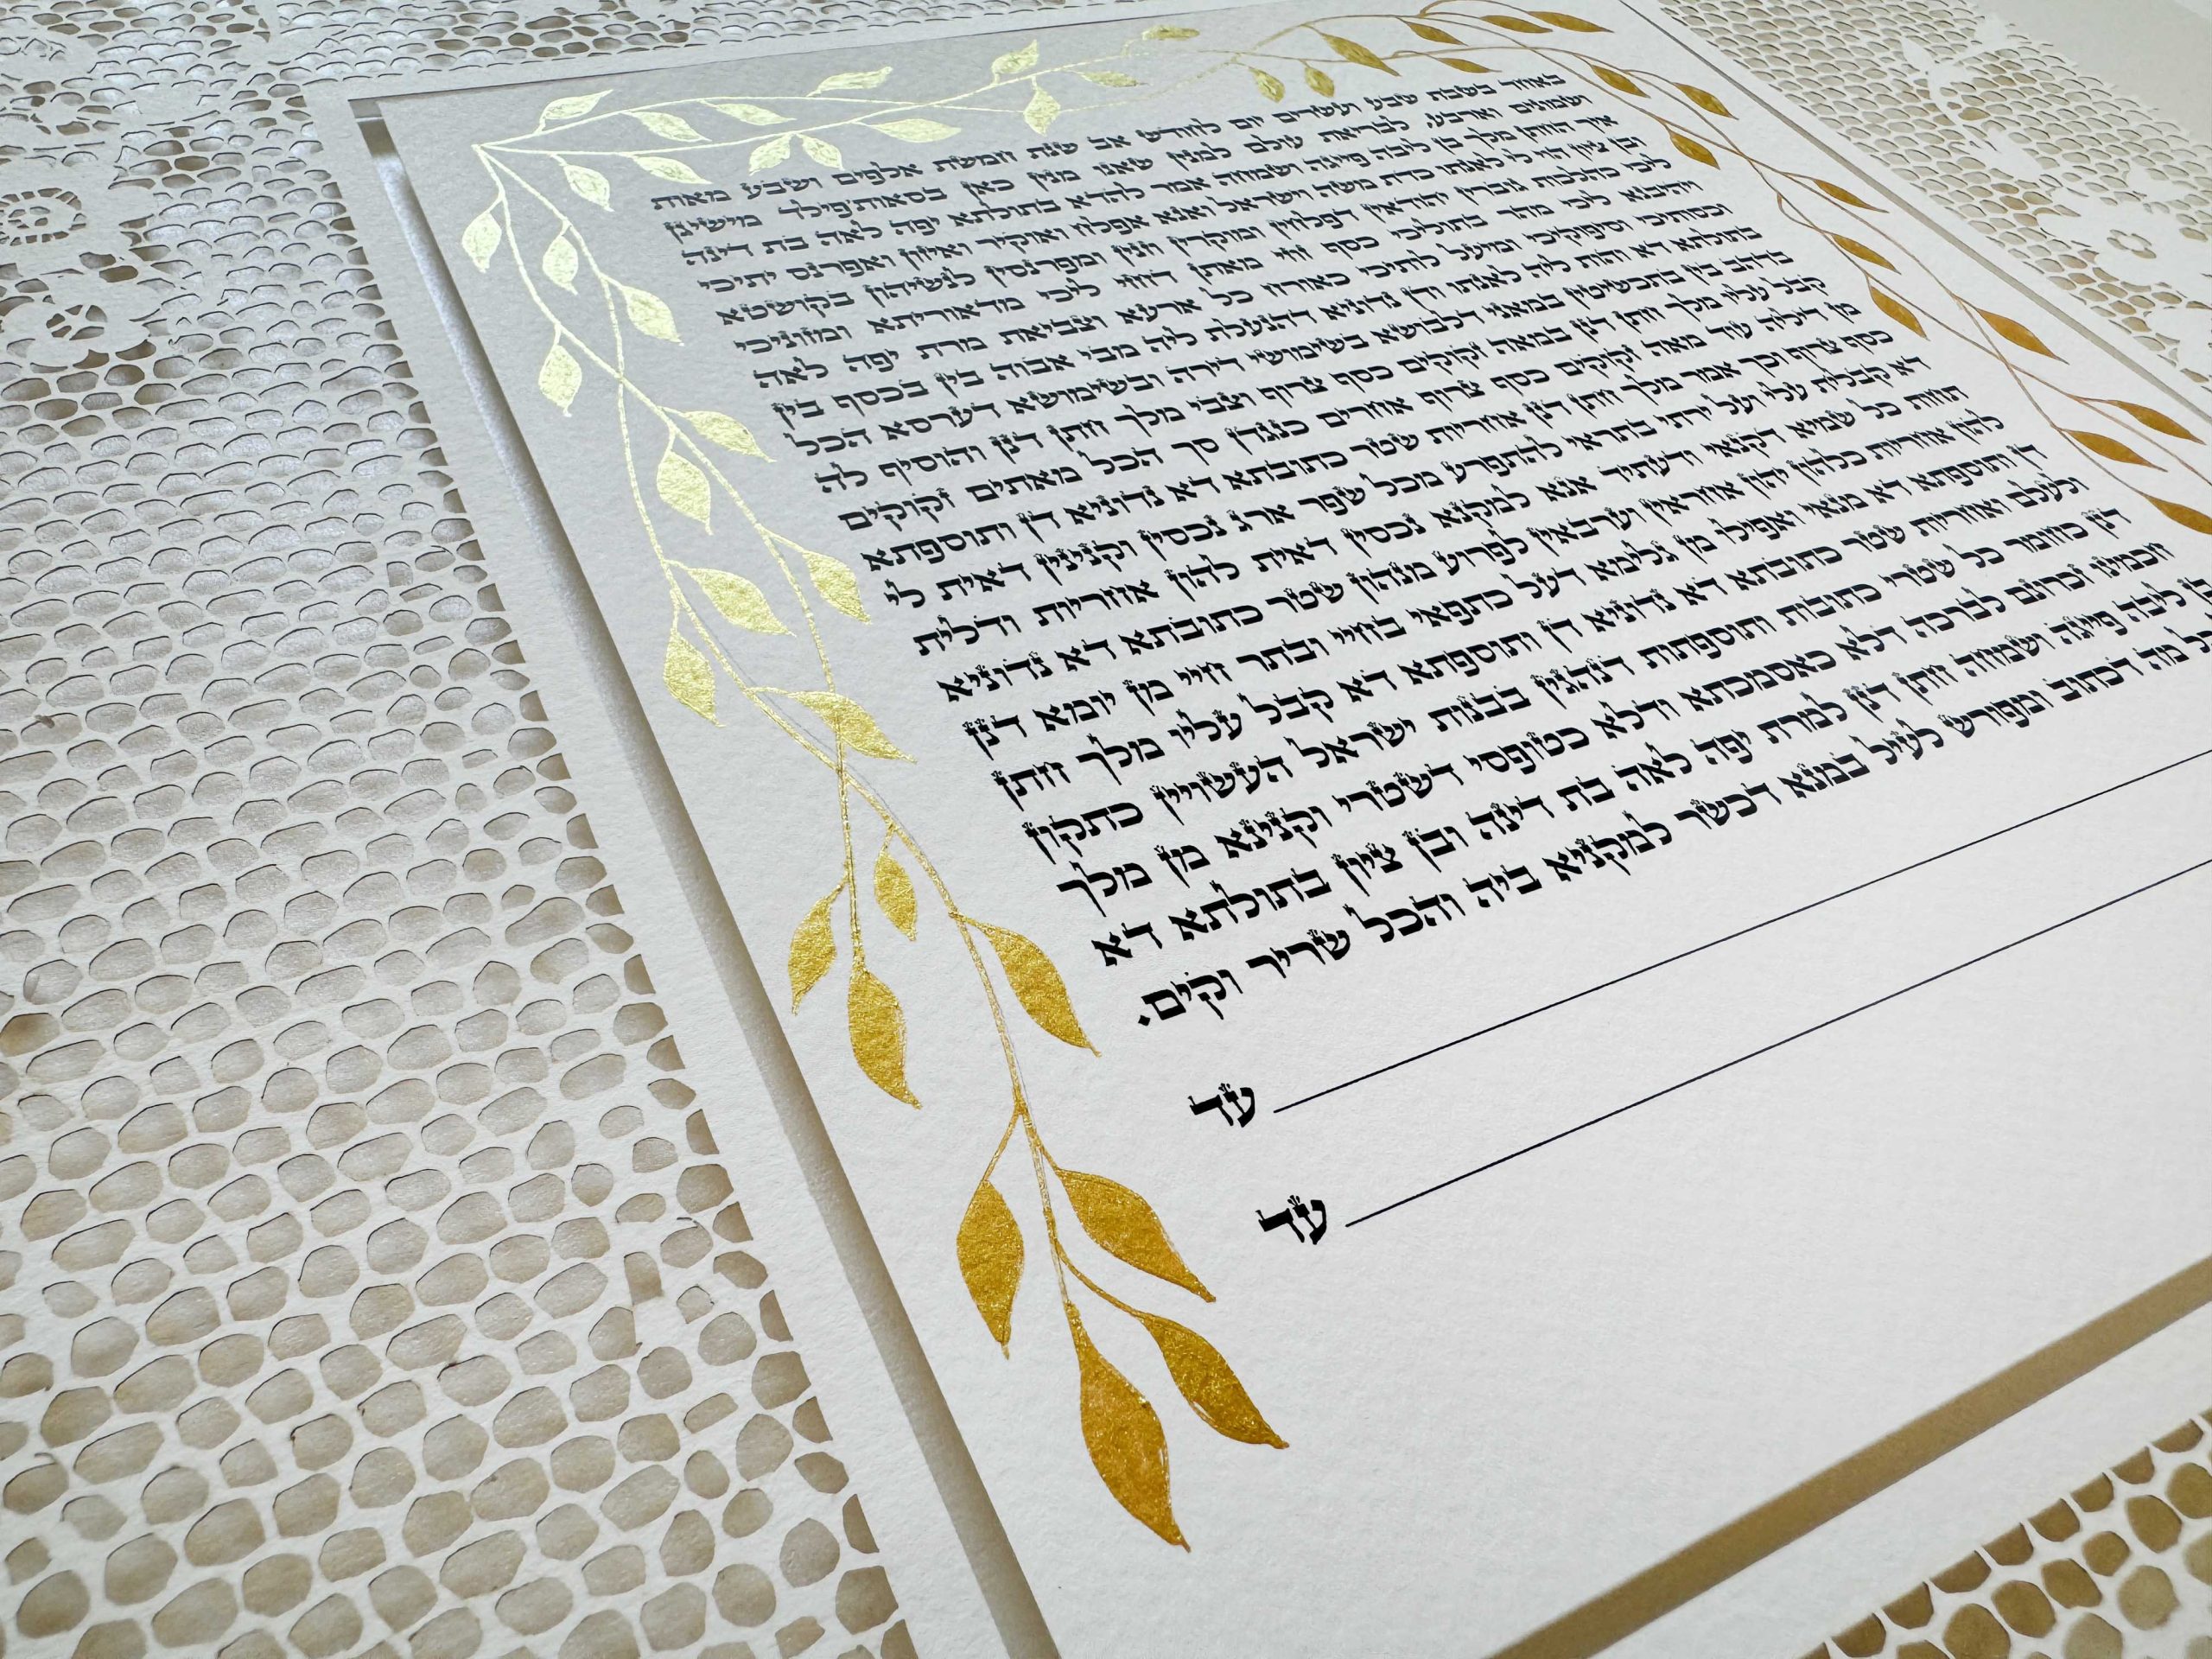 באחד בשבת שבע ועשרים יום לחודש אב שנת חמשת אלפים ושבע מאות
ושמונים וארבע, לבריאת עולם למנין שאנו מנין כאן בסאות׳פילד מישיגן
איך החתן מלך בן ליבה פייגה ושמחה אמר להדא בתולתא יפה לאה בת דינה
ובן ציון הוי לי לאנתו כדת משה וישראל ואנא אפלח ואוקיר ואיזון ואפרנס יתיכי
ליכי כהלכות גוברין יהודאין דפלחין ומוקרין וזנין ומפרנסין לנשיהון בקושטא
ויהיבנא ליכי מהר בתוליכי כסף זוזי מאתן דחזי ליכי מדאוריתא ומזוניכי
וכסותיכי וסיפוקיכי ומיעל לותיכי כאורח כל ארעא וצביאת מרת יפה לאה
בתולתא דא והות ליה לאנתו ודן נדוניא דהנעלת ליה מבי אבוה בין בכסף בין
בדהב בין בתכשיטין במאני דלבושא בשימושי דירה ובשימושא דערסא הכל
קבל עליו מלך חתן דנן במאה זקוקים כסף צרוף וצבי מלך חתן דנן והוסיף לה
מן דיליה עוד מאה זקוקים כסף צרוף אחרים כנגדן סך הכל מאתים זקוקים
כסף צרוף וכך אמר מלך חתן דנן אחריות שטר כתובתא דא נדוניא דן ותוספתא
דא קבלית עלי ועל ירתי בתראי להתפרע מכל שפר ארג נכסין וקנינין דאית לי
תחות כל שמיא דקנאי ודעתיד אנא למקנא נכסין דאית להון אחריות ודלית
להון אחריות כלהון יהון אחראין וערבאין לפרוע מנהון שטר כתובתא דא נדוניא
דן ותוספתא דא מנאי ואפילו מן גלימא דעל כתפאי בחיי ובתר חיי מן יומא דנן
ולעלם ואחריות שטר כתובתא דא נדוניא דן ותוספתא דא קבל עליו מלך חתן
דנן כחומר כל שטרי כתובות ותוספתות דנהגין בבנות ישראל העשויין כתקון
חכמינו זכרונם לברכה דלא כאסמכתא ודלא כטופסי דשטרי וקנינא מן מלך
בן ליבה פייגה ושמחה חתן דנן למרת יפה לאה בת דינה ובן ציון בתולתא דא
מה דכתוב ומפורש לעיל במנא דכשר למקניא ביה והכל שריר וקים.
עד
עד